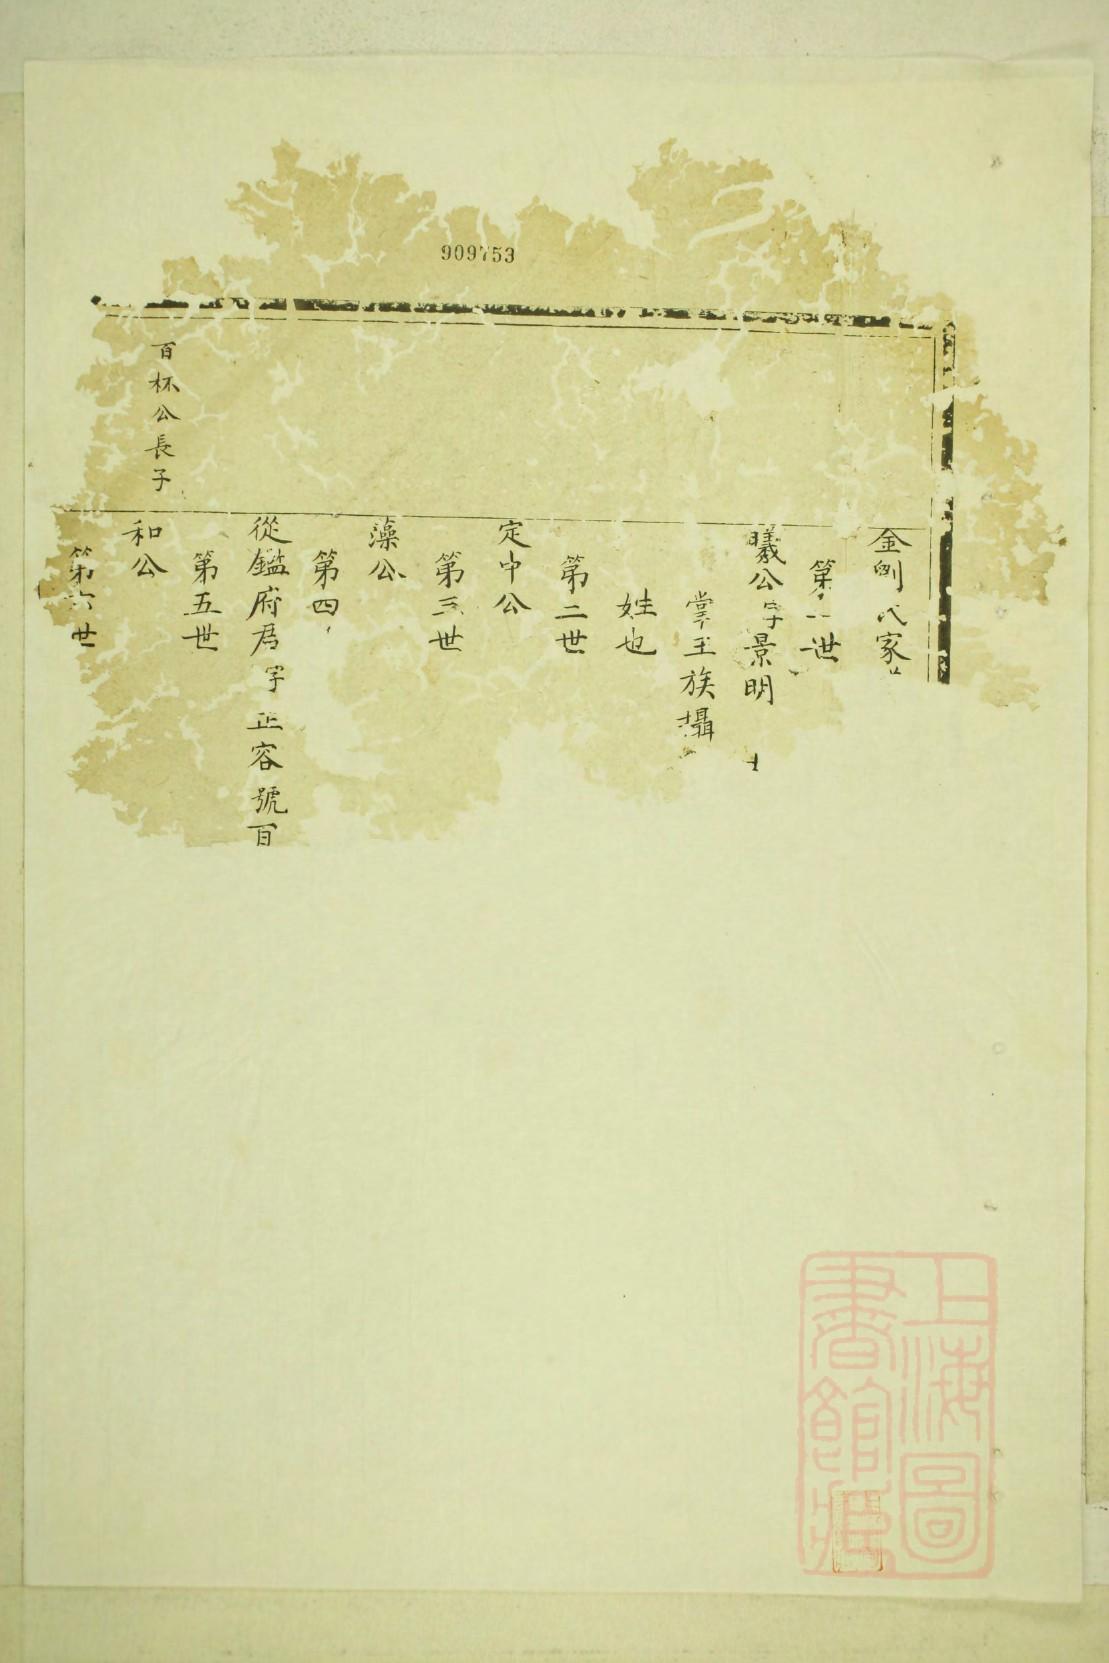 909753
金劉氏家
第一世
曦公字景明
掌王族攝
姓也
第二世
定中公
第三世
藻公
第四
從鑑府君字正容號百
第五世
百杯公長子
和公
第六世
上海圖書館藏